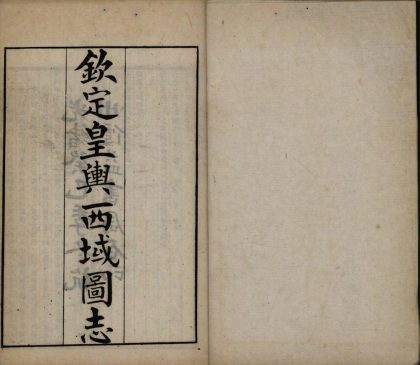 欽定皇輿西域圖志